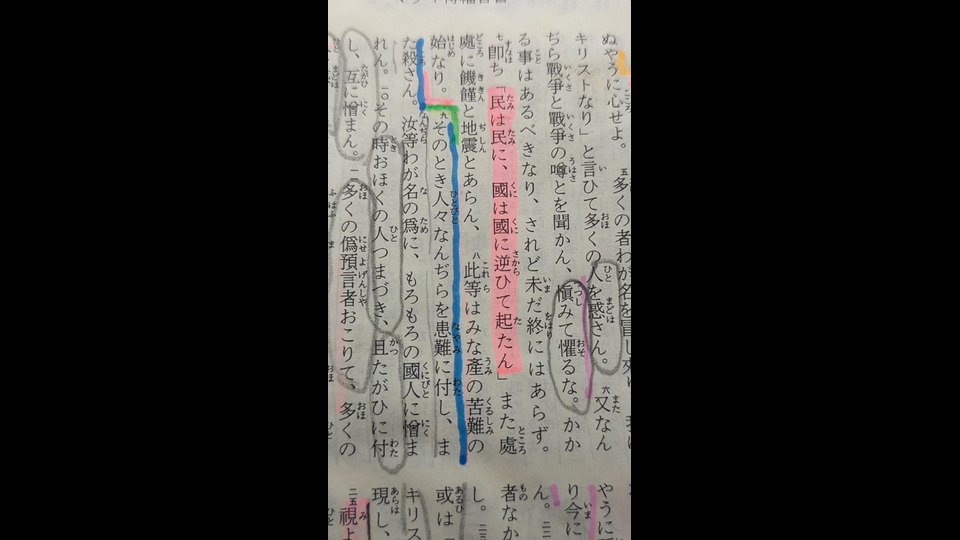 ぬやうに心せよ。五多くの者わが名を冒し來り
キリストなり」と言ひて多くの人を惑さん。六又なん
ぢら戰爭と戰爭の噂とを聞かん、愼みて懼るな。かか
る事はあるべきなり、されど未だ終にはあらず。
七即ち「民は民に、國は國に逆ひて起たん」また處
處に饑饉と地震とあらん、八此等はみな產の苦難の
始なり。九そのとき人々なんぢらを患難に付し、ま
た殺さん。汝等わが名の爲に、もろもろの國人に憎ま
れん。一〇その時おほくの人つまづき、且たがひに付
し、互に憎まん。一一多くの僞預言者おこりて、多くの
やうに
り今に
ん。二二
者なか
し。二三
或は
キリス
現し、
二五視よ